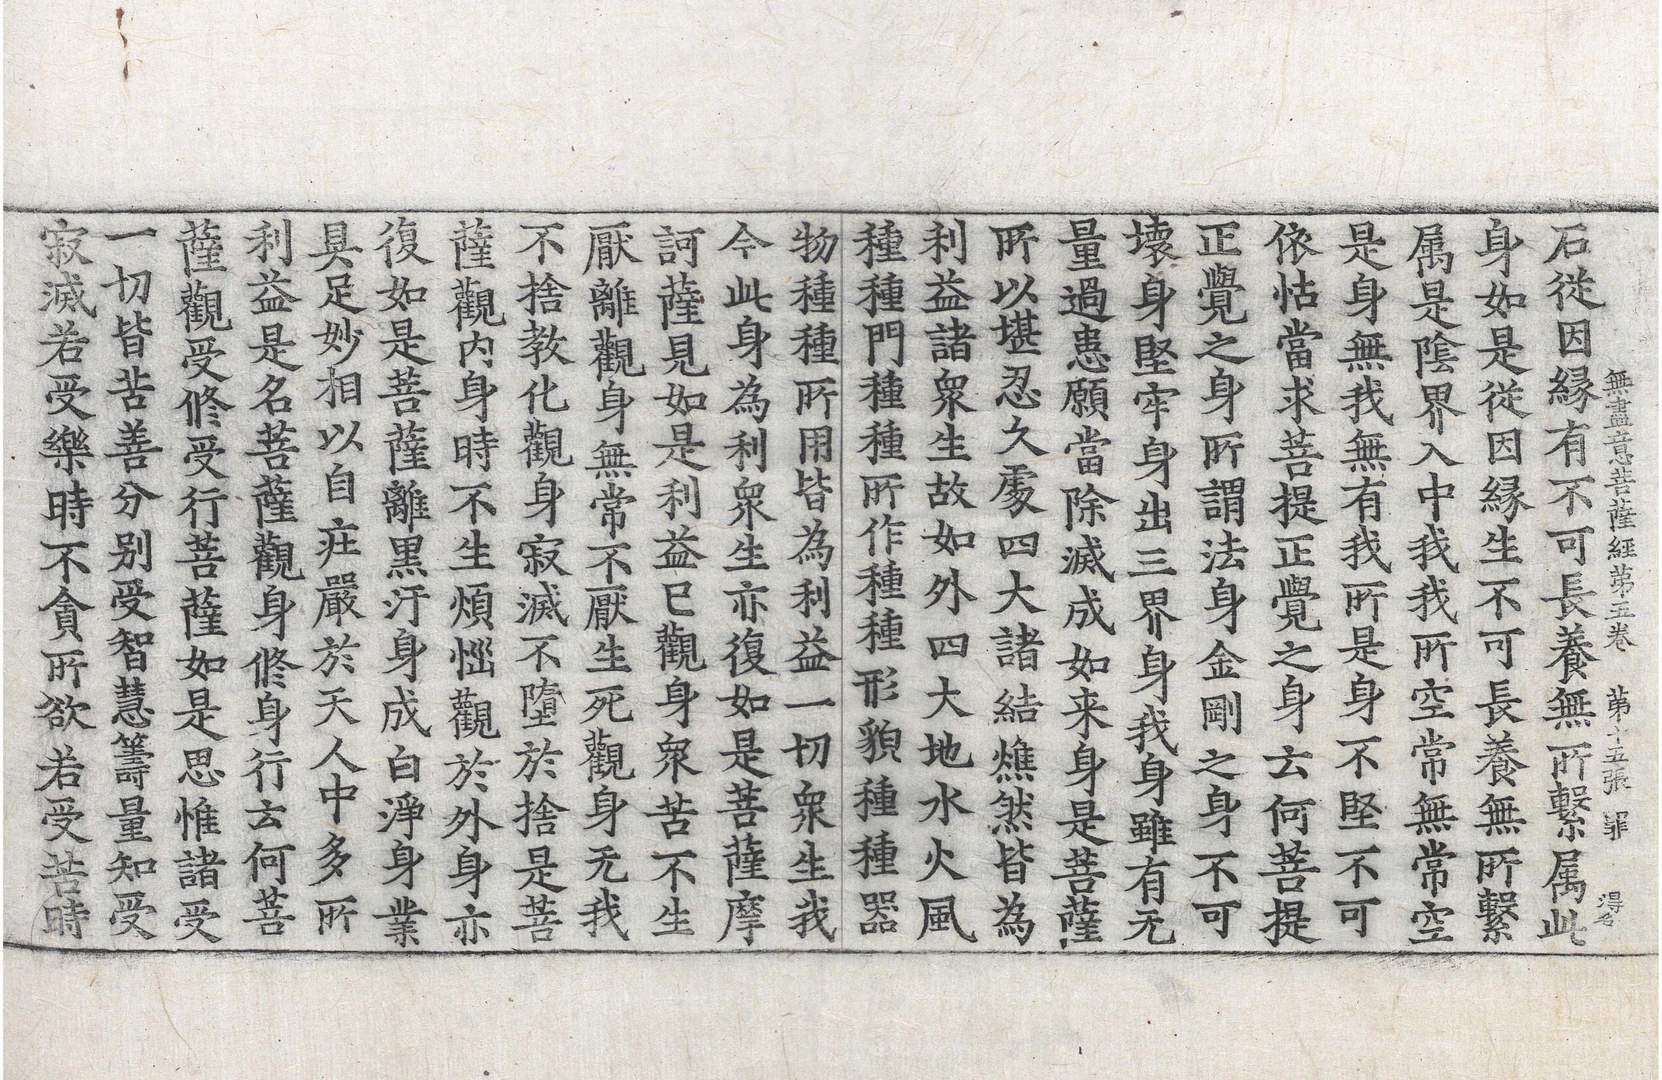 無盡意菩薩經第五卷 第十五張 罪 得名
石從因縁有不可長養無所繫属此
身如是從因縁生不可長養無所繫
属是陰界入中我我所空常無常空
是身無我無有我所是身不堅不可
依怙當求菩提正覺之身云何菩提
正覺之身所謂法身金剛之身不可
壞身堅牢身出三界身我身雖有无
量過患願當除滅成如来身是菩薩
所以堪忍久處四大諸結燋然皆為
利益諸衆生故如外四大地水火風
種種門種種所作種種形貌種種器
物種種所用皆為利益一切衆生我
今此身為利衆生亦復如是菩薩摩
訶薩見如是利益已觀身衆苦不生
厭離觀身無常不厭生死觀身无我
不捨教化觀身寂滅不墮於捨是菩
薩觀内身時不生煩惱觀於外身亦
復如是菩薩離黒汙身成白淨身業
具足妙相以自庄嚴於天人中多所
利益是名菩薩觀身修身行云何菩
薩觀受修受行菩薩如是思惟諸受
一切皆苦善分别受智慧籌量知受
寂滅若受樂時不貪所欲若受苦時